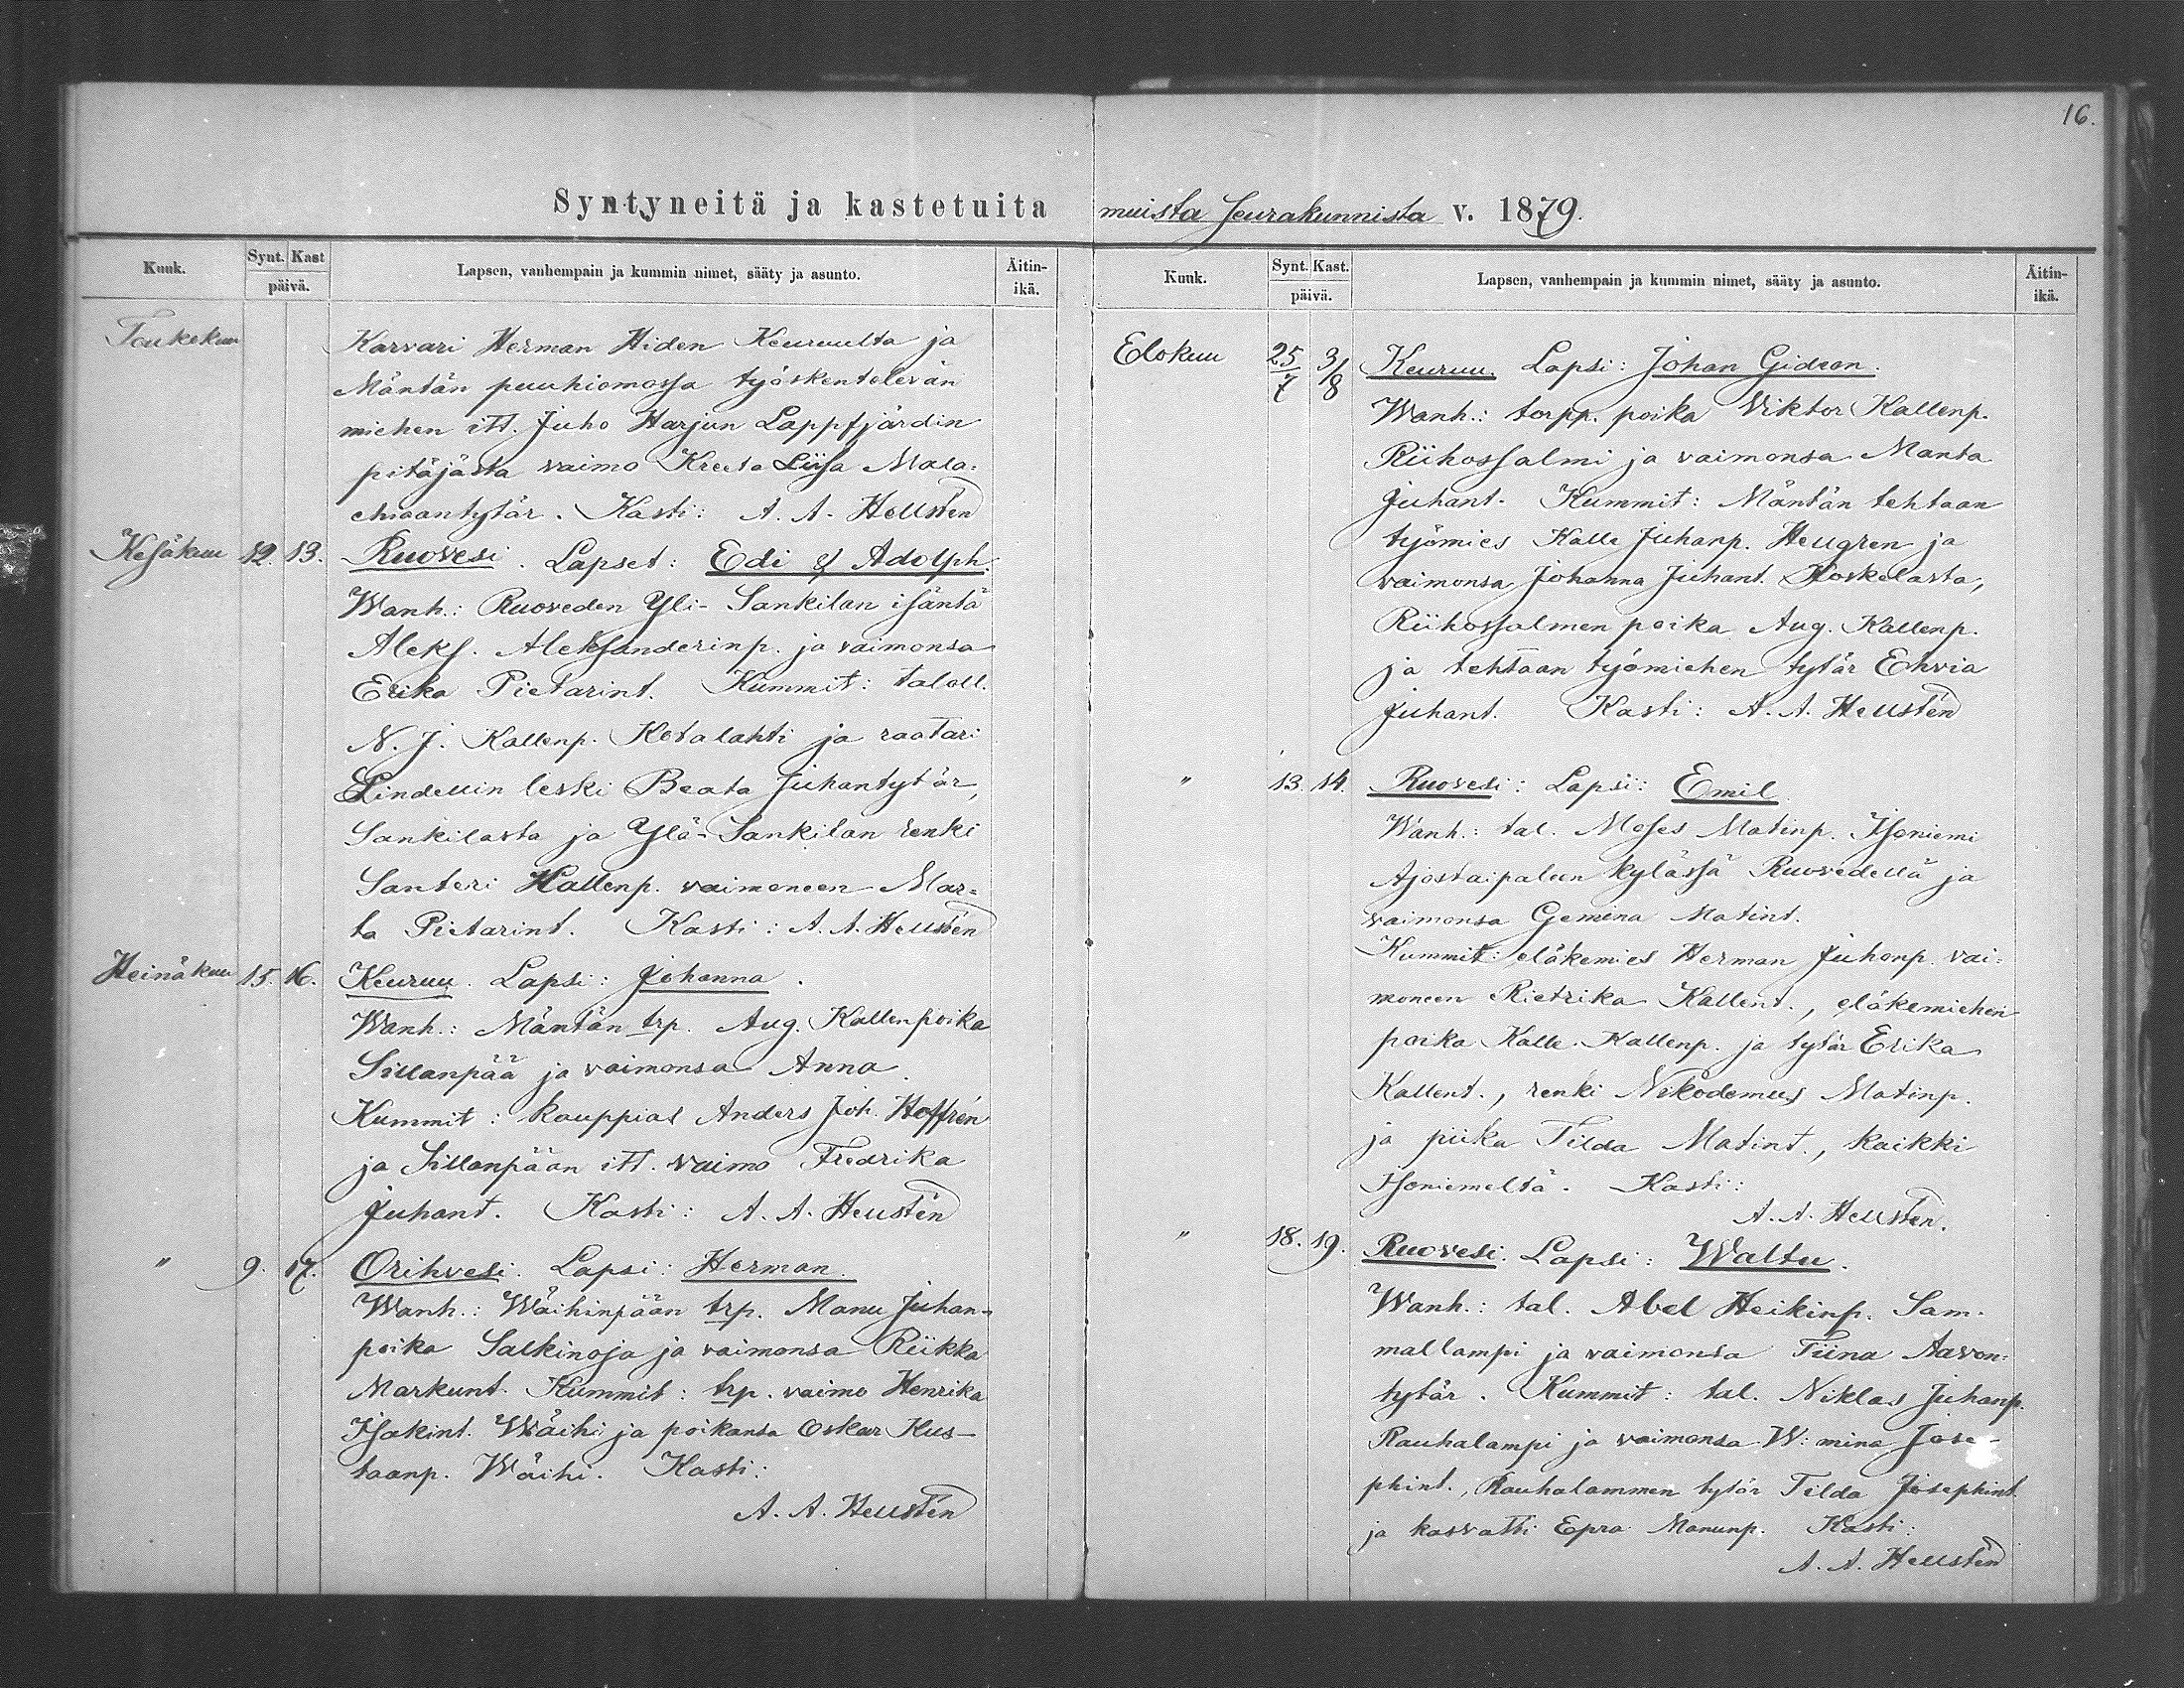 16.
Syntyneitä ja kastetuita muista seurakunnista v. 1879.
Kuuk. Synt. Kast päivä. Lapsen, vanhempain ja kummin nimet, sääty ja asunto. Äitin-ikä.
Toukokuu Karvari Herman Hiden Keuruulta ja
Mäntän puuhiomossa työskentelevän
miehen itl. Juho Harjun Lappfjärdin
pitäjästa vaimo Kreeta Liisa Mala-
chiaantytär. Kasti: A. A. Hellstén
Kesäkuu 12. 13. Ruovesi. Lapset: Edi & Adolph.
Wanh.: Ruoveden Yli-Sankilan isäntä
Aleks. Aleksanderinp. ja vaimonsa
Erika Pietarint. Kummit: taloll.
N. J. Kallenp. Kotalahti ja raatari
Lindellin leski Beata Juhantytär,
Sankilasta ja Ylä-Sankilan renki
Santeri Kallenp. vaimoneen Mar-
ta Pietarint. Kasti: A. A. Hellstén
Heinäkuu 15. 16. Keuruu. Lapsi: Johanna.
Wanh.: Mäntän trp. Aug. Kallenpoika
Sillanpää ja vaimonsa Anna.
Kummit: kauppias Anders Joh. Hoffrén
ja Sillanpään itl. vaimo Fredrika
Juhant. Kasti: A. A. Hellstén
" 9. 17. Orihvesi. Lapsi: Herman.
Wanh.: Wäihinpään trp. Manu Juhan-
poika Salkinoja ja vaimonsa Riikka
Markunt. Kummit: trp. vaimo Henrika
Isakint. Wäihi ja poikansa Oskar Kus-
taanp. Wäihi. Kasti:
A. A. Hellstén
Kuuk. Synt. Kast. päivä. Lapsen, vanhempain ja kummin nimet, sääty ja asunto. Äitin-ikä.
Elokuu 25/7 3/8 Keuruu. Lapsi: Johan Gideon.
Wanh.: torpp. poika Viktor Kallenp.
Riihossalmi ja vaimonsa Manta
Juhant. Kummit: Mäntän tehtaan
työmies Kalle Juhanp. Hellgren ja
vaimonsa Johanna Juhant. Koskelasta,
Riihossalmen poika Aug. Kallenp.
ja tehtaan työmiehen tytär Ehvia
Juhant. Kasti: A. A. Hellstén
" 13. 14. Ruovesi: Lapsi: Emil
Wanh.: tal. Moses Matinp. Isoniemi
Ajostaipaleen kylässä Ruovedellä ja
vaimonsa Gemina Matint.
Kummit: eläkemies Herman Juhanp. vai-
moneen Rietrika Kallent., eläkemiehen
poika Kalle Kallenp. ja tytär Erika
Kallent., renki Nikodemus Matinp.
ja piika Tilda Matint., kaikki
Isoniemeltä. Kasti:
A. A. Hellstén.
" 18. 19. Ruovesi. Lapsi: Waltu.
Wanh.: tal. Abel Heikinp. Sam-
mallampi ja vaimonsa Tiina Aaron-
tytär. Kummit: tal. Niklas Juhanp.
Rauhalampi ja vaimonsa W:mina Jose-
phint., Rauhalammen tytär Tilda Josephint.
ja kasvatti Epra Manunp. Kasti:
A. A. Hellstén